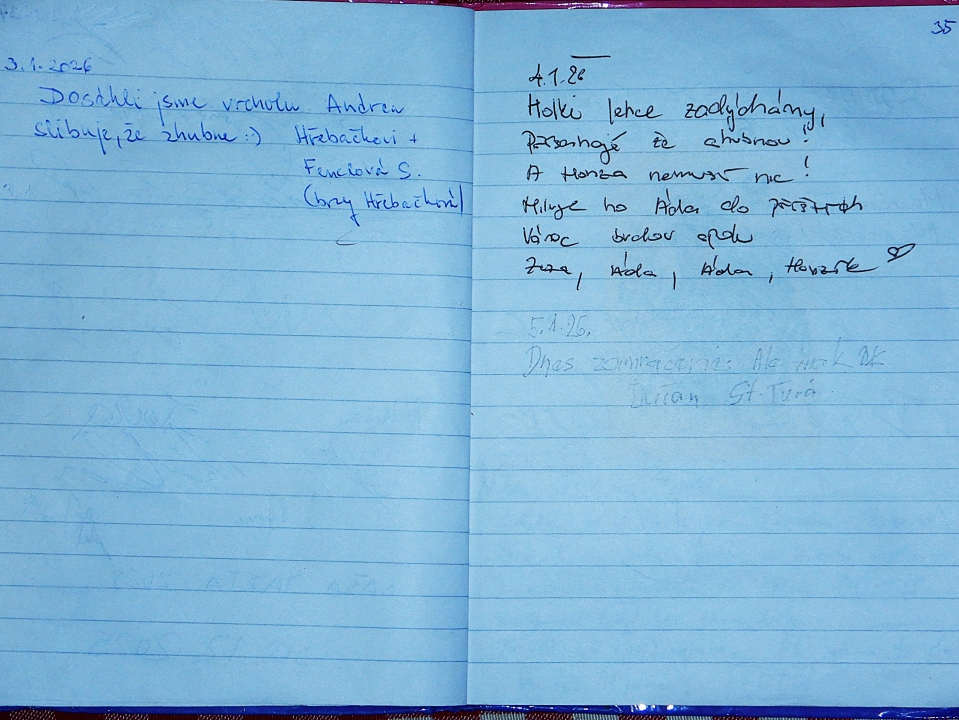 3.1.2026
Dosáhli jsme vrcholu Andrea
slibuje, že zhubne :) Hřebačkovi +
Fenclová S.
(brzy Hřebačková)
35
4.1.26
Holki lehce zadýchány,
že zhubnou!
A Honza nemusí nic!
Miluje ho Áďa do
Áďa, Áďa, Honzík
5.1.26.
Dnes zamračené. Ale inak OK
Dušan St. Turá